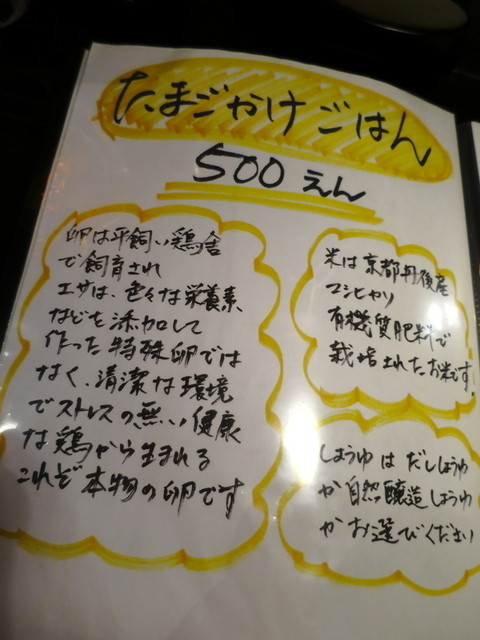 たまごかけごはん
500えん
卵は平飼い鶏舎
で飼育され
エサは、色々な栄養素
などを添加して
作った特殊卵では
なく、清潔な環境
でストレスの無い健康
な鶏から生まれる
これぞ本物の卵です
米は京都丹後産
コシヒカリ
有機質肥料で
栽培されたお米です!
しょうゆはだししょうゆ
か自然醸造しょうゆ
かお選びください